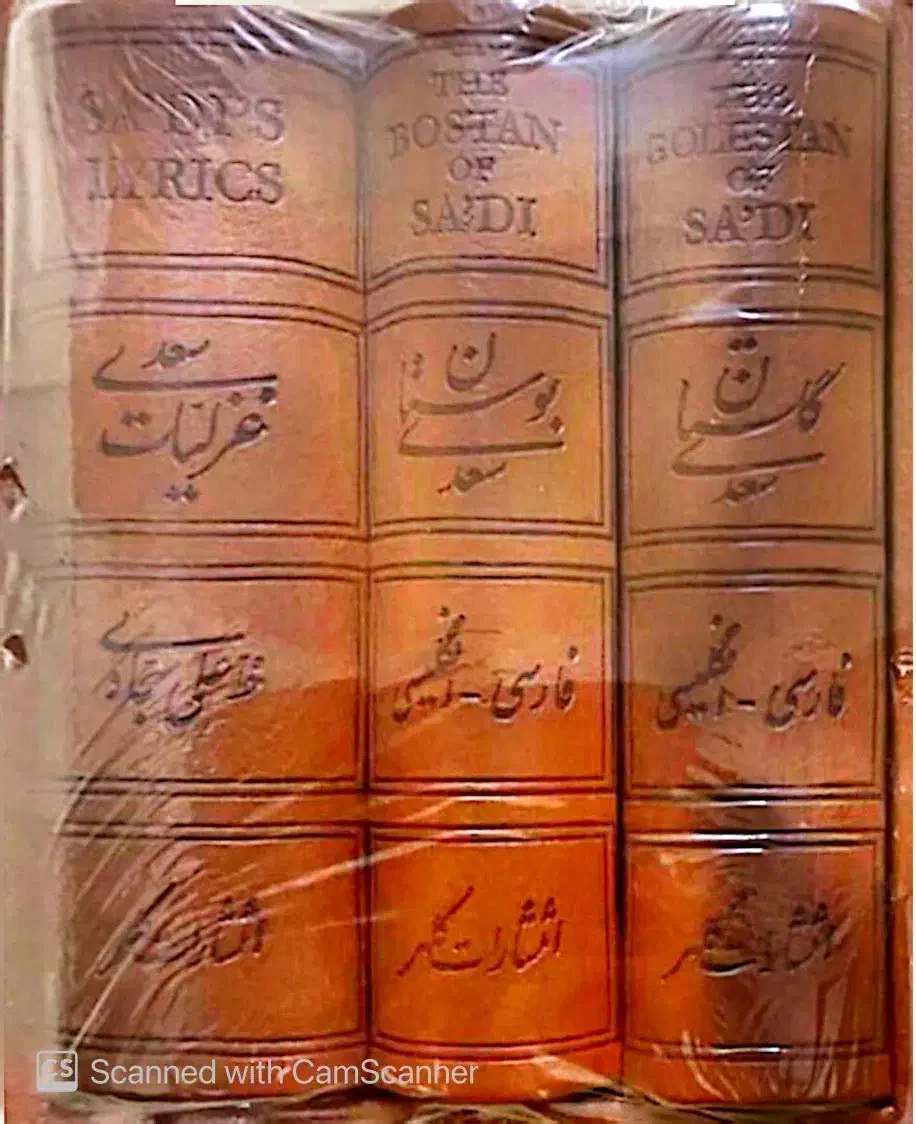 SA'DI'S
LYRICS
غزلیات
سعدی
انتشارات
THE
BOSTAN
OF
SA'DI
بوستان
سعدی
فارسی - انگلیسی
انتشارات
THE
GOLESTAN
OF
SA'DI
گلستان
سعدی
فارسی - انگلیسی
انتشارات
CS Scanned with CamScanner